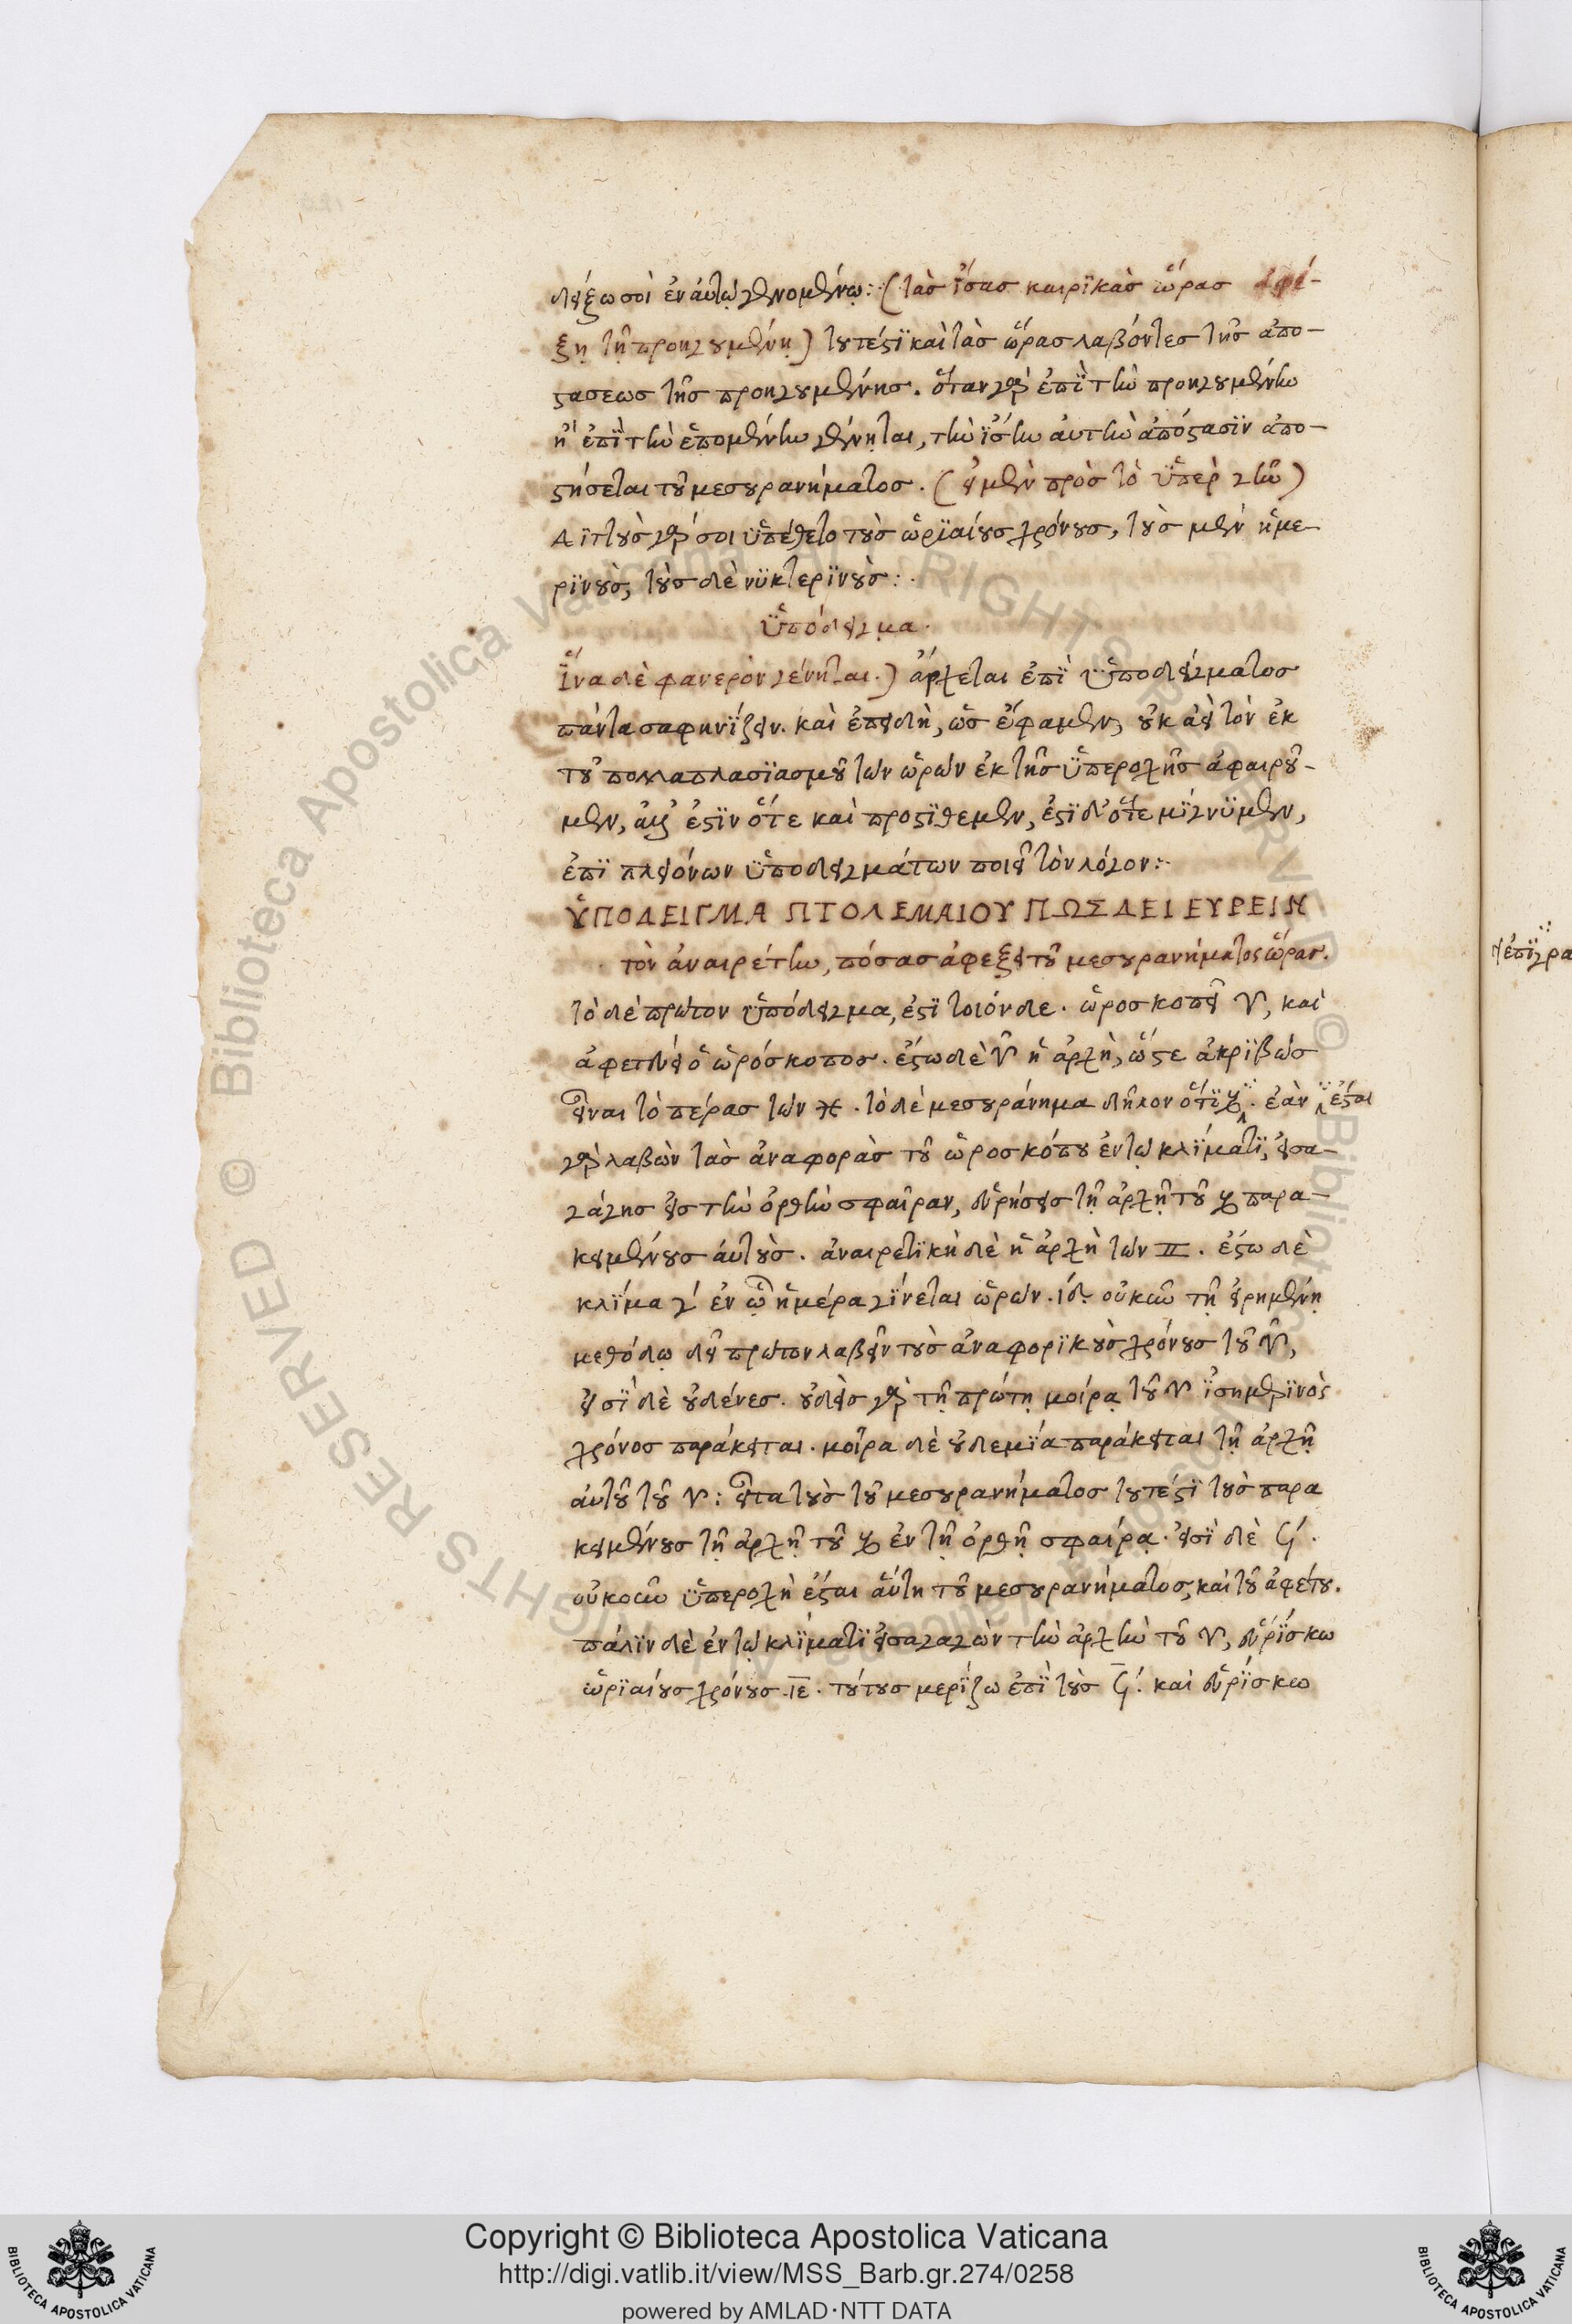 δείξω σοὶ ἐν αὐτῷ γενομένῳ:· (τὰς ἴσας καιρικὰς ὥρας ἀφέ-
ξῃ τῇ προηγουμένῃ) τουτέστι καὶ τὰς ὥρας λαβόντες τῆς ἀπο-
στάσεως τῆς προηγουμένης. ὅταν γὰρ ἐπὶ τὴν προηγουμένην
ἢ ἐπὶ τὴν ἑπομένην γένηται, τὴν ἴσην αὐτὴν ἀπόστασιν ἀπο-
στήσεται τοῦ μεσουρανήματος. (εἰ μὲν πρὸς τὸ ὑπὲρ γῆν)
Διττοὺς γάρ σοι ὑπέθετο τοὺς ὡριαίους χρόνους, τοὺς μὲν ἡμε-
ρινοὺς, τοὺς δὲ νυκτερινούς:·
ὑπόδειγμα.
Ἵνα δὲ φανερὸν γένηται.) ἄρχεται ἐπὶ ὑποδείγματος
πάντα σαφηνίζειν. καὶ ἐπειδὴ, ὡς ἔφαμεν, οὐκ ἀεὶ τὸν ἐκ
τοῦ πολλαπλασιασμοῦ τῶν ὡρῶν ἐκ τῆς ὑπεροχῆς ἀφαιροῦ-
μεν, ἀλλ' ἔστιν ὅτε καὶ προστίθεμεν, ἔστι δ' ὅτε μίγνυμεν,
ἐπὶ πλειόνων ὑποδειγμάτων ποιεῖ τὸν λόγον:·
ὙΠΟΔΕΙΓΜΑ ΠΤΟΛΕΜΑΙΟΥ ΠΩΣ ΔΕΙ ΕΥΡΕΙΝ
τὸν ἀναιρέτην, πόσας ἀφέξει τοῦ μεσουρανήματος ὥρας.
τὸ δὲ πρῶτον ὑπόδειγμα, ἐστὶ τοιόνδε. ὡροσκοπεῖ ♈, καὶ
ἀφετεύει ὁ ὡρόσκοπος. ἔστω δὲ ♈ ἡ ἀρχὴ, ὥστε ἀκριβῶς
εἶναι τὸ πέρας τῶν ♓. τὸ δὲ μεσουράνημα δῆλον ὅτι ♑. ἐὰν ἔσται
γὰρ λαβὼν τὰς ἀναφορὰς τοῦ ὡροσκόπου ἐν τῷ κλίματι, εἰσα-
γάγῃς εἰς τὴν ὀρθὴν σφαῖραν, εὑρήσεις τῇ ἀρχῇ τοῦ ♑ παρα-
κειμένους αὐτούς. ἀναιρετικὴ δὲ ἡ ἀρχὴ τῶν ♊. ἔστω δὲ
κλίμα γ' ἐν ᾧ ἡ ἡμέρα γίνεται ὡρῶν .ιδ. οὐκοῦν τῇ εἰρημένῃ
μεθόδῳ δεῖ πρῶτον λαβεῖν τοὺς ἀναφορικοὺς χρόνους τοῦ ♈,
εἰσὶ δὲ οὐδένες. οὐδεὶς γὰρ τῇ πρώτῃ μοίρᾳ τοῦ ♈ ἰσημερινὸς
χρόνος παράκειται. μοῖρα δὲ οὐδεμία παράκειται τῇ ἀρχῇ
αὐτοῦ τοῦ ♈: εἶτα τοὺς τοῦ μεσουρανήματος τουτέστι τοὺς παρα
κειμένους τῇ ἀρχῇ τοῦ ♑ ἐν τῇ ὀρθῇ σφαίρᾳ. εἰσὶ δὲ ϟ'.
οὐκοῦν ὑπεροχὴ ἔσται αὕτη τοῦ μεσουρανήματος, καὶ τοῦ ἀφέτου.
πάλιν δὲ ἐν τῷ κλίματι εἰσαγαγὼν τὴν ἀρχὴν τοῦ ♈, εὑρίσκω
ὡριαίους χρόνους .ιε. τούτους μερίζω ἐπὶ τοὺς ϟ'. καὶ εὑρίσκω